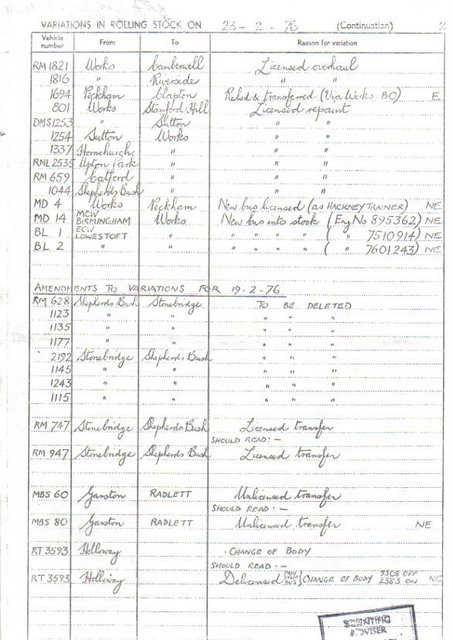 VARIATIONS IN ROLLING STOCK ON 23-2-76 (Continuation) 2
Vehicle number From To Reason for variation
RM 1821 Works Camberwell Licensed overhaul
1816 " Riverside " "
1694 Peckham Clapton Relsd & transferred (Via Works BO) E
801 Works Stamford Hill Licensed repaint
DMS 1253 " Sutton " "
1254 Sutton Works " "
1337 Hornchurch " " "
RML 2535 Upton Park " " "
RM 659 Catford " " "
1044 Shepherds Bush " " "
MD 4 Works Peckham New bus licensed (as HACKNEY TRAINER) NE
MD 14 MCW BIRMINGHAM Works New bus into stock (Eng No 895362) NE
BL 1 ECW LOWESTOFT " " " " " ( " 7510914) NE
BL 2 " " " " " " ( " 7601243) NE
AMENDMENTS TO VARIATIONS FOR 19-2-76
RM 628 Shepherds Bush Stonebridge TO BE DELETED
1123 " " " " "
1135 " " " " "
1177 " " " " "
2192 Stonebridge Shepherds Bush " " "
1145 " " " " "
1243 " " " " "
1115 " " " " "
RM 747 Stonebridge Shepherds Bush Licensed transfer
SHOULD READ:-
RM 947 Stonebridge Shepherds Bush Licensed transfer
MBS 60 Garston RADLETT Unlicensed transfer
SHOULD READ:-
MBS 80 Garston RADLETT Unlicensed transfer NE
RT 3593 Holloway CHANGE OF BODY
SHOULD READ:-
RT 3593 Holloway Delicensed CHANGE OF BODY 7308 OFF 2383 ON NE
SCIENTIFIC ADVISER